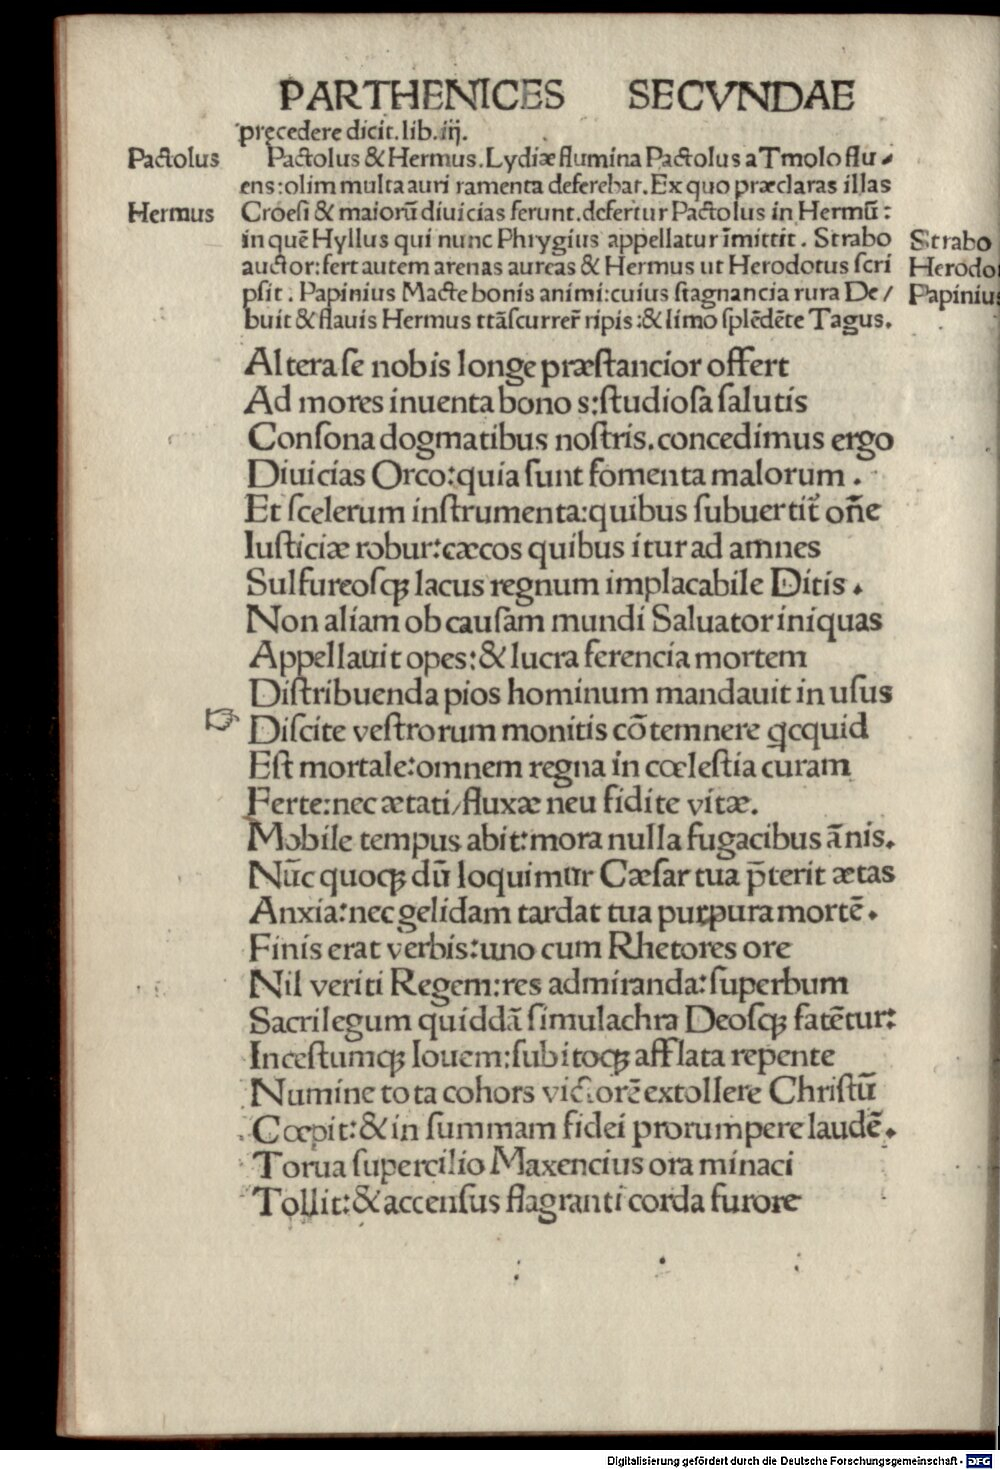 PARTHENICES SECVNDAE
pręcedere dicit. lib. iij.
Pactolus
Pactolus & Hermus. Lydiæ flumina Pactolus a Tmolo flu⸗
ens: olim multa auri ramenta deferebat. Ex quo præclaras illas
Hermus
Croeſi & maiorū diuicias ferunt. defertur Pactolus in Hermū:
in quē Hyllus qui nunc Phrygius appellatur īmittit. Strabo
Strabo
auctor: fert autem arenas aureas & Hermus ut Herodotus ſcri
Herodo
pſit. Papinius Macte bonis animi: cuius ſtagnancia rura De/
Papinius
buit & flauis Hermus ttāſcurrer̄ ripis: & limo ſplēdēte Tagus.
Altera ſe nobis longe præſtancior offert
Ad mores inuenta bonos: ſtudioſa ſalutis
Conſona dogmatibus noſtris. concedimus ergo
Diuicias Orco: quia ſunt fomenta malorum.
Et ſcelerum inſtrumenta: quibus ſubuertit̄ om̄e
Iuſticiæ robur: cæcos quibus itur ad amnes
Sulfureoſqꝫ lacus regnum implacabile Ditis.
Non aliam ob cauſam mundi Saluator iniquas
Appellauit opes: & lucra ferencia mortem
Diſtribuenda pios hominum mandauit in uſus
☞ Diſcite veſtrorum monitis cōtemnere qcquid
Eſt mortale: omnem regna in cœleſtia curam
Ferte: nec ætati/ fluxæ neu fidite vitæ.
Mobile tempus abit: mora nulla fugacibus ānis.
Nūc quoqꝫ dū loquimur Cæſar tua p̄terit ætas
Anxia: nec gelidam tardat tua purpura mortē.
Finis erat verbis: uno cum Rhetores ore
Nil veriti Regem: res admiranda: ſuperbum
Sacrilegum quiddā ſimulachra Deoſqꝫ fatētur:
Inceſtumqꝫ Iouem: ſubitoqꝫ afflata repente
Numine tota cohors victorē extollere Chriſtū
Cœpit: & in ſummam fidei prorumpere laudē.
Torua ſupercilio Maxencius ora minaci
Tollit: & accenſus flagranti corda furore
Digitalisierung gefördert durch die Deutsche Forschungsgemeinschaft - DFG